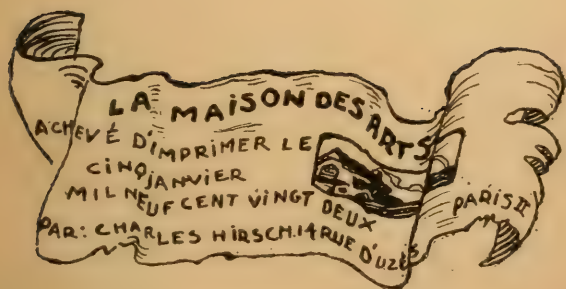 LA MAISON DES ARTS
ACHEVÉ D'IMPRIMER LE
CINQ JANVIER
MIL NEUF CENT VINGT DEUX
PAR: CHARLES HIRSCH. 14 RUE D'UZÈS
PARIS II